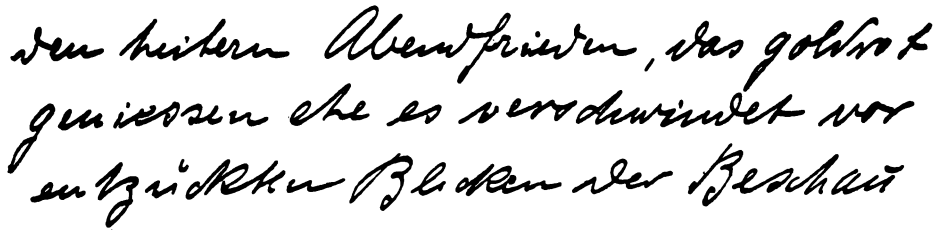 den heitern Abendfrieden, das goldrot
geniessen ehe es verschwindet vor
entzückten Blicken der Beschau